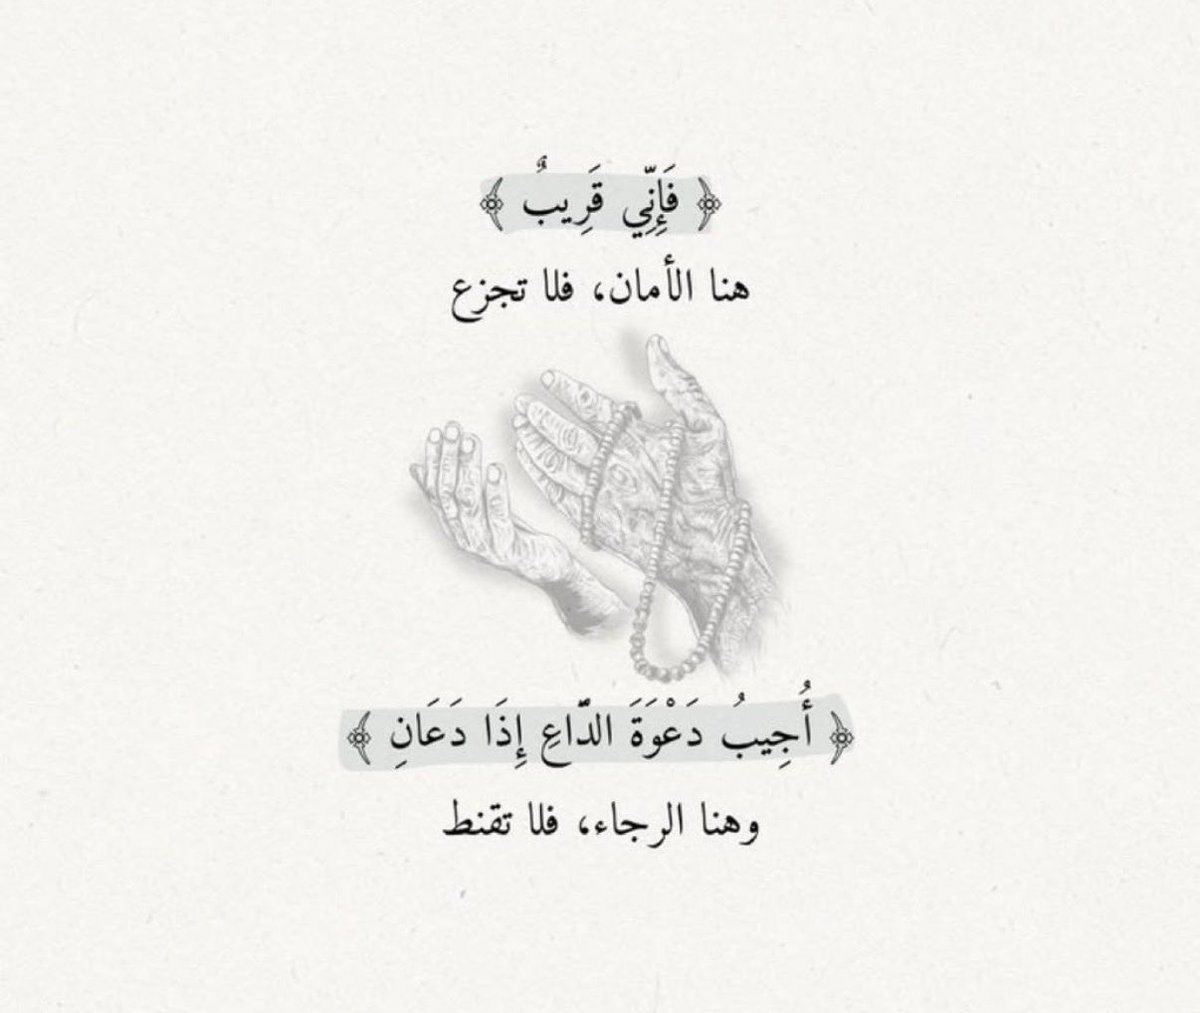 ﴿ فَإِنِّي قَرِيبٌ ﴾
هنا الأمان، فلا تجزع
﴿ أُجِيبُ دَعْوَةَ الدَّاعِ إِذَا دَعَانِ ﴾
وهنا الرجاء، فلا تقنط